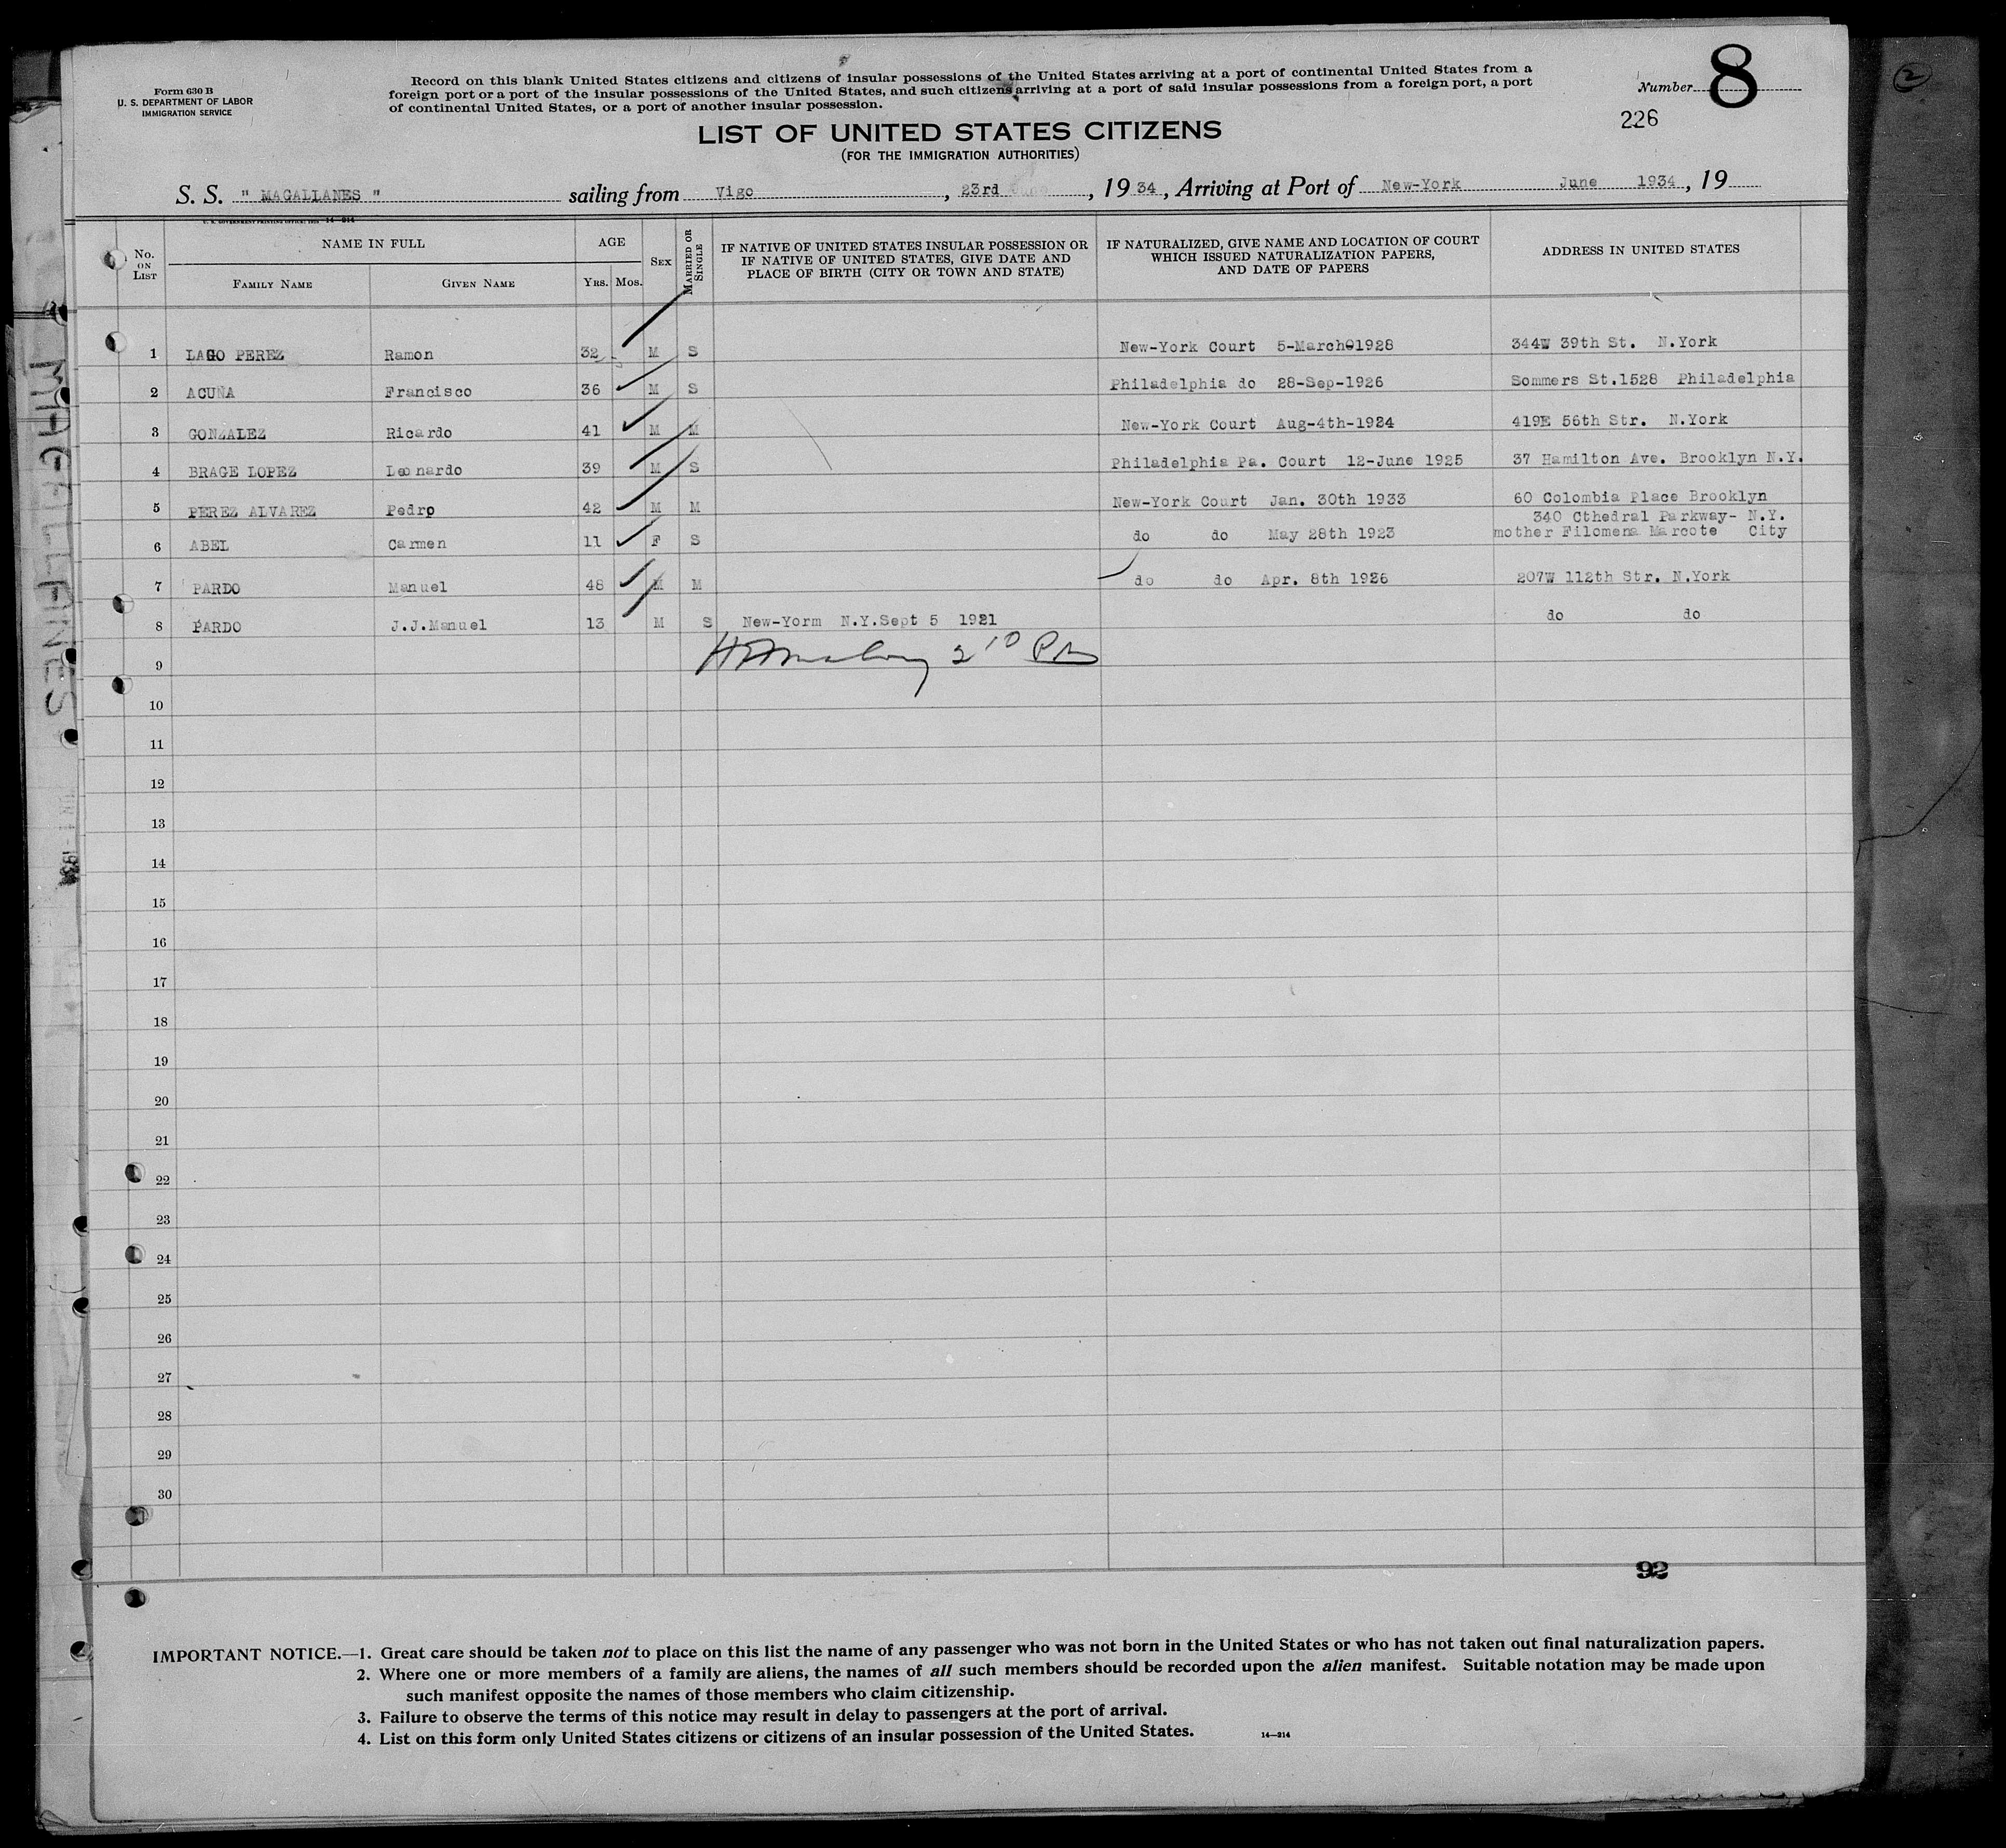 Form 630 B
U. S. DEPARTMENT OF LABOR
IMMIGRATION SERVICE
Record on this blank United States citizens and citizens of insular possessions of the United States arriving at a port of continental United States from a
foreign port or a port of the insular possessions of the United States, and such citizens arriving at a port of said insular possessions from a foreign port, a port
of continental United States, or a port of another insular possession.
Number 8
2
226
LIST OF UNITED STATES CITIZENS
(FOR THE IMMIGRATION AUTHORITIES)
S. S. " MAGALLANES " sailing from Vigo , 23rd June , 1934 , Arriving at Port of New-York June 1934 , 19
No. ON LIST
NAME IN FULL
FAMILY NAME
GIVEN NAME
AGE
YRS. MOS.
SEX
MARRIED OR SINGLE
IF NATIVE OF UNITED STATES INSULAR POSSESSION OR
IF NATIVE OF UNITED STATES, GIVE DATE AND
PLACE OF BIRTH (CITY OR TOWN AND STATE)
IF NATURALIZED, GIVE NAME AND LOCATION OF COURT
WHICH ISSUED NATURALIZATION PAPERS,
AND DATE OF PAPERS
ADDRESS IN UNITED STATES
1 LAGO PEREZ Ramon 32 M S New-York Court 5-March-1928 344W 39th St. N.York
2 ACUÑA Francisco 36 M S Philadelphia do 28-Sep-1926 Sommers St.1528 Philadelphia
3 GONZALEZ Ricardo 41 M M New-York Court Aug-4th-1924 419E 56th Str. N.York
4 BRAGE LOPEZ Leonardo 39 M S Philadelphia Pa. Court 12-June 1925 37 Hamilton Ave. Brooklyn N.Y.
5 PEREZ ALVAREZ Pedro 42 M M New-York Court Jan. 30th 1933 60 Colombia Place Brooklyn
340 Cthedral Parkway- N.Y.
6 ABEL Carmen 11 F S do do May 28th 1923 mother Filomena Marcote City
7 PARDO Manuel 48 M M do do Apr. 8th 1926 207W 112th Str. N.York
8 PARDO J.J.Manuel 13 M S New-Yorm N.Y.Sept 5 1921 do do
9
10
11
12
13
14
15
16
17
18
19
20
21
22
23
24
25
26
27
28
29
30
92
IMPORTANT NOTICE.—1. Great care should be taken not to place on this list the name of any passenger who was not born in the United States or who has not taken out final naturalization papers.
2. Where one or more members of a family are aliens, the names of all such members should be recorded upon the alien manifest. Suitable notation may be made upon
such manifest opposite the names of those members who claim citizenship.
3. Failure to observe the terms of this notice may result in delay to passengers at the port of arrival.
4. List on this form only United States citizens or citizens of an insular possession of the United States.
14—214
MAGALLANES